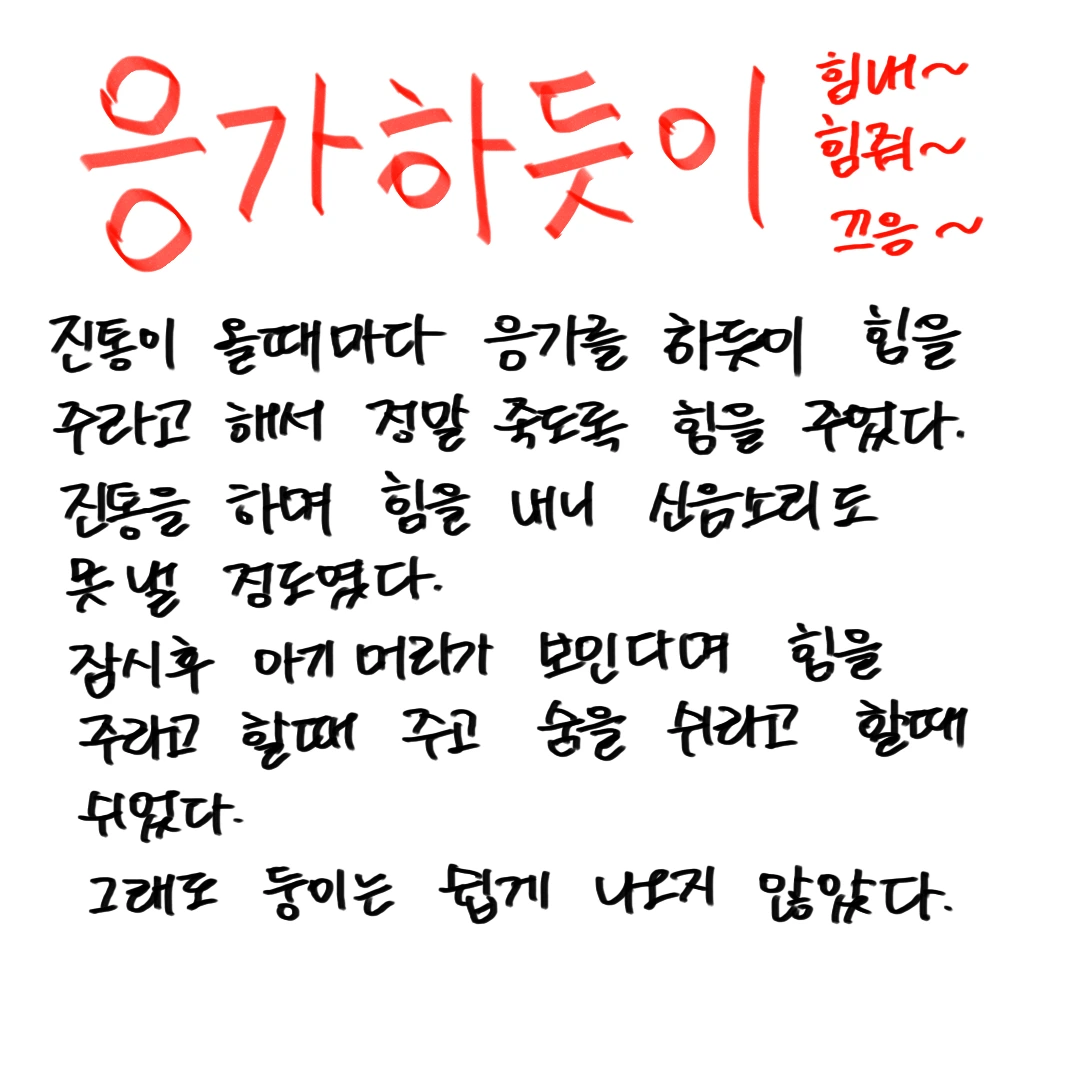 응가하듯이
힘내~
힘줘~
끄응~
진통이 올때마다 응가를 하듯이 힘을
주라고 해서 정말 죽도록 힘을 주었다.
진통을 하며 힘을 내니 신음소리도
못낼 정도였다.
잠시후 아기머리가 보인다며 힘을
주라고 할때 주고 숨을 쉬라고 할때
쉬었다.
그래도 둥이는 쉽게 나오지 않았다.